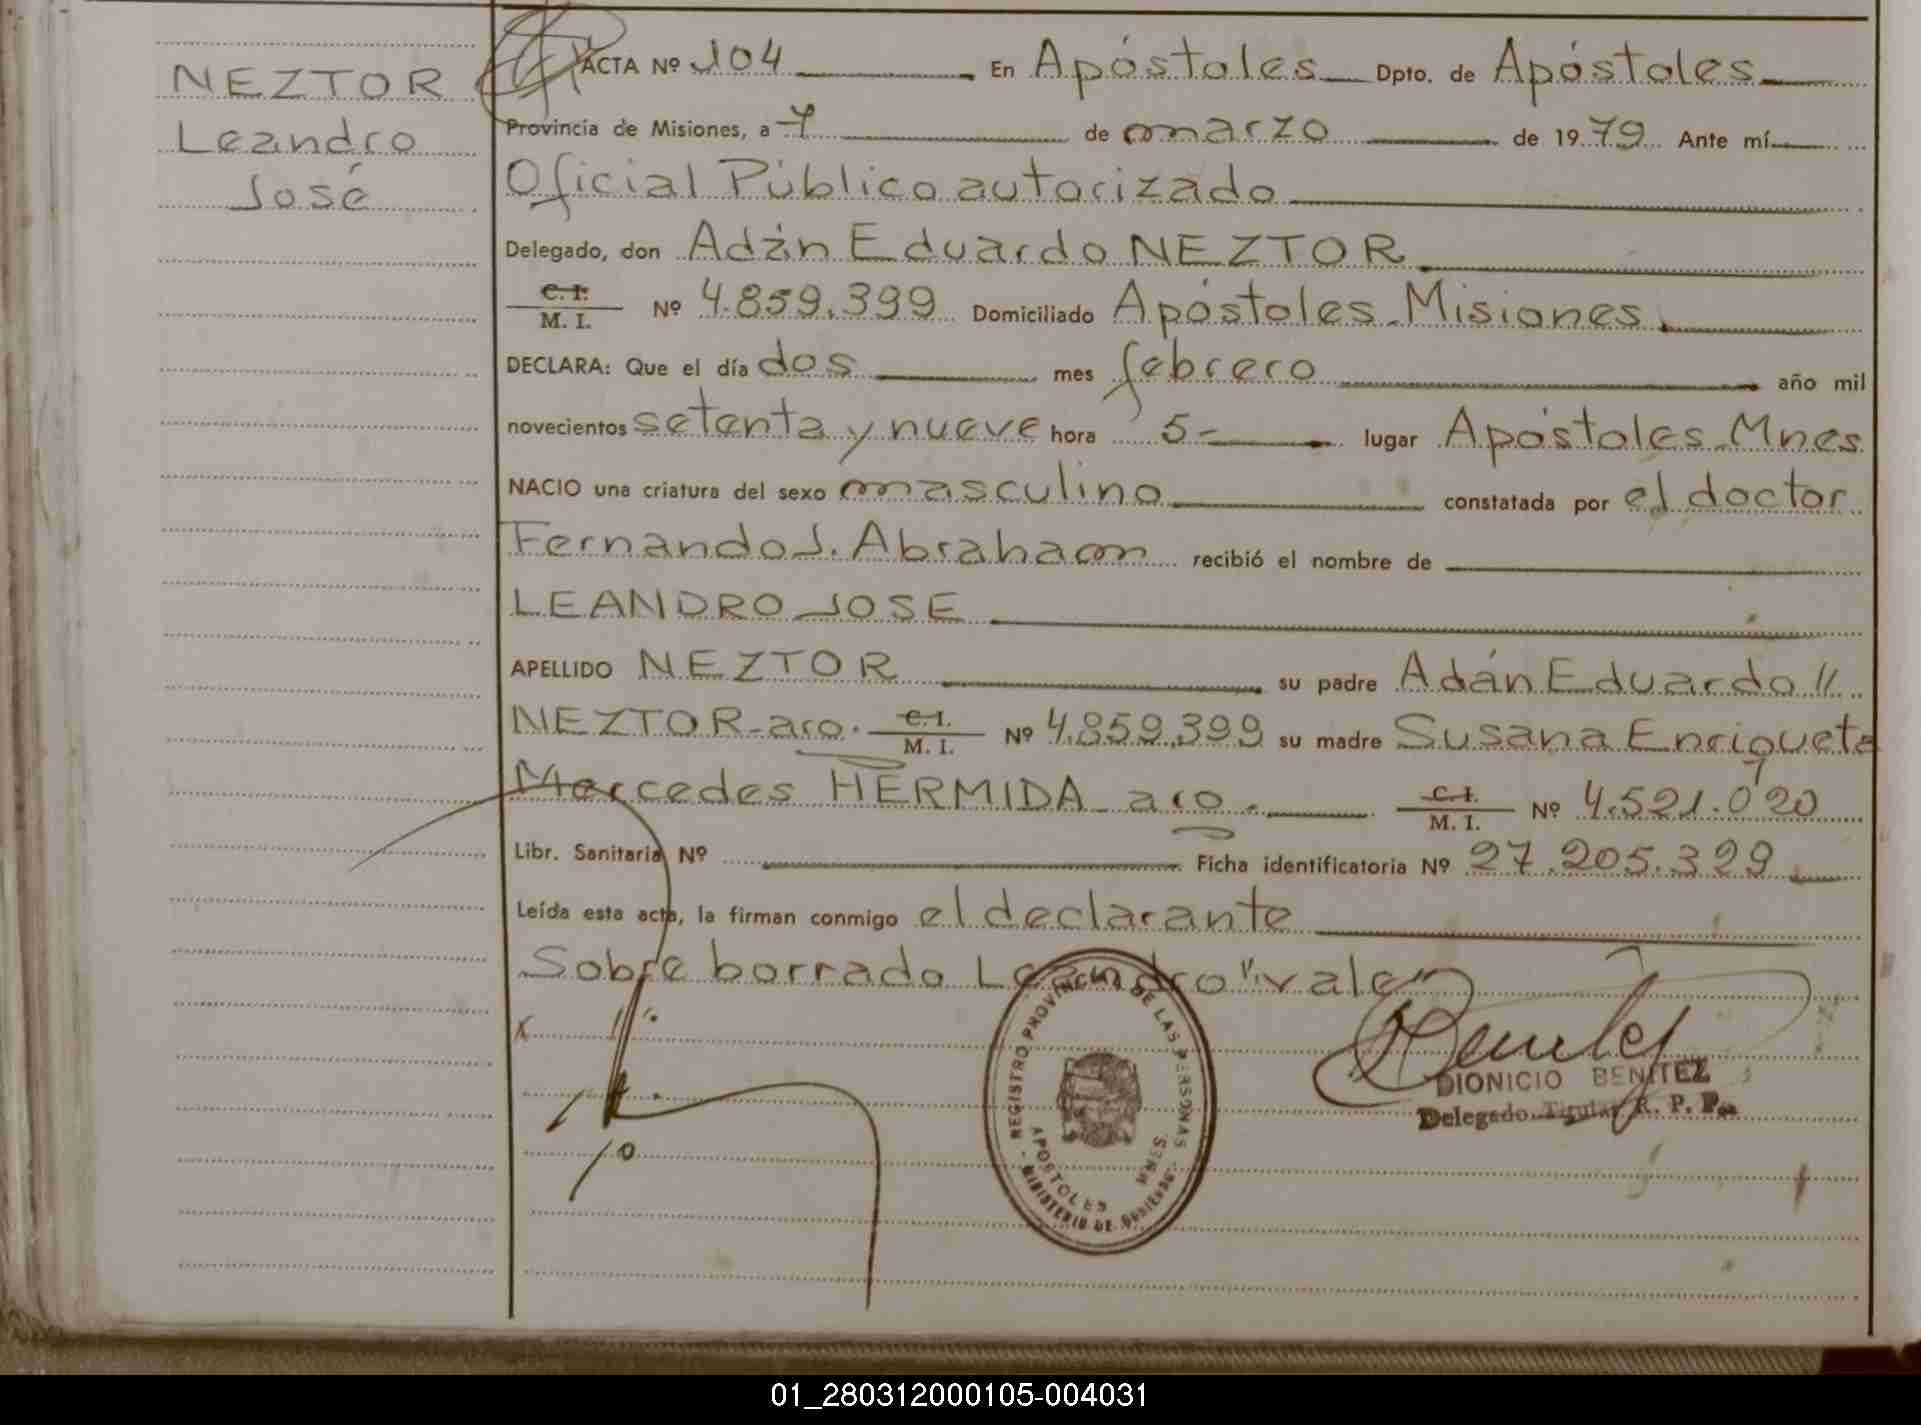 NEZTOR
Leandro
José
ACTA Nº 104 En Apóstoles Dpto. de Apóstoles
Provincia de Misiones, a 7 de marzo de 1979 Ante mí
Oficial Público autorizado
Delegado, don Adán Eduardo NEZTOR
C. I. / M. I. Nº 4.859.399 Domiciliado Apóstoles-Misiones
DECLARA: Que el día dos mes febrero año mil
novecientos setenta y nueve hora 5- lugar Apóstoles-Mnes
NACIO una criatura del sexo masculino constatada por el doctor
Fernando J. Abraham recibió el nombre de
LEANDRO JOSE
APELLIDO NEZTOR su padre Adán Eduardo //
NEZTOR-aro. C. I. / M. I. Nº 4.859.399 su madre Susana Enriqueta
Mercedes HERMIDA-aro. C. I. / M. I. Nº 4.521.020
Libr. Sanitaria Nº Ficha identificatoria Nº 27.205.329
Leída esta acta, la firman conmigo el declarante
Sobre borrado Leandro "vale"
x
REGISTRO PROVINCIAL DE LAS PERSONAS
APOSTOLES MNES.
- MINISTERIO DE GOBIERNO -
DIONICIO BENITEZ
Delegado Titular R. P. P.
01_280312000105-004031